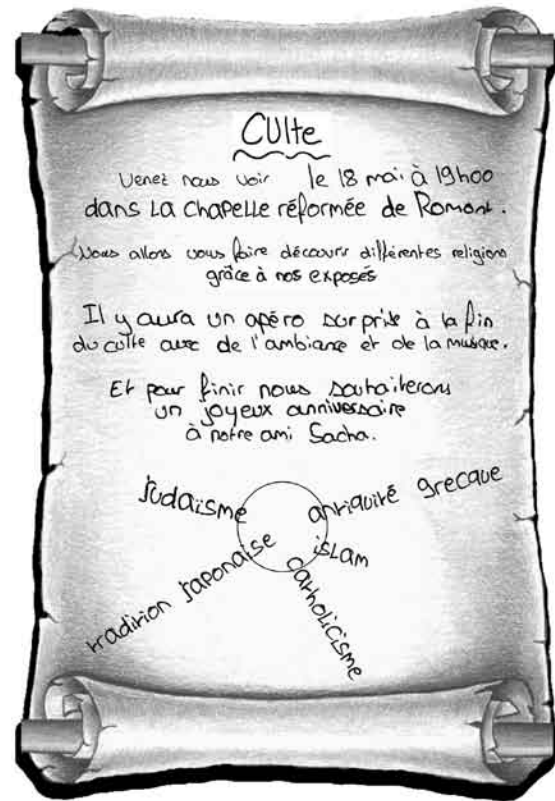 Culte
Venez nous voir le 18 mai à 19h00
dans la chapelle réformée de Romont.
Nous allons vous faire découvrir différentes religions
grâce à nos exposés
Il y aura un apéro surprise à la fin
du culte avec de l'ambiance et de la musique.
Et pour finir nous souhaiterons
un joyeux anniversaire
à notre ami Sacha.
judaïsme
antiquité grecque
tradition japonaise
islam
catholicisme